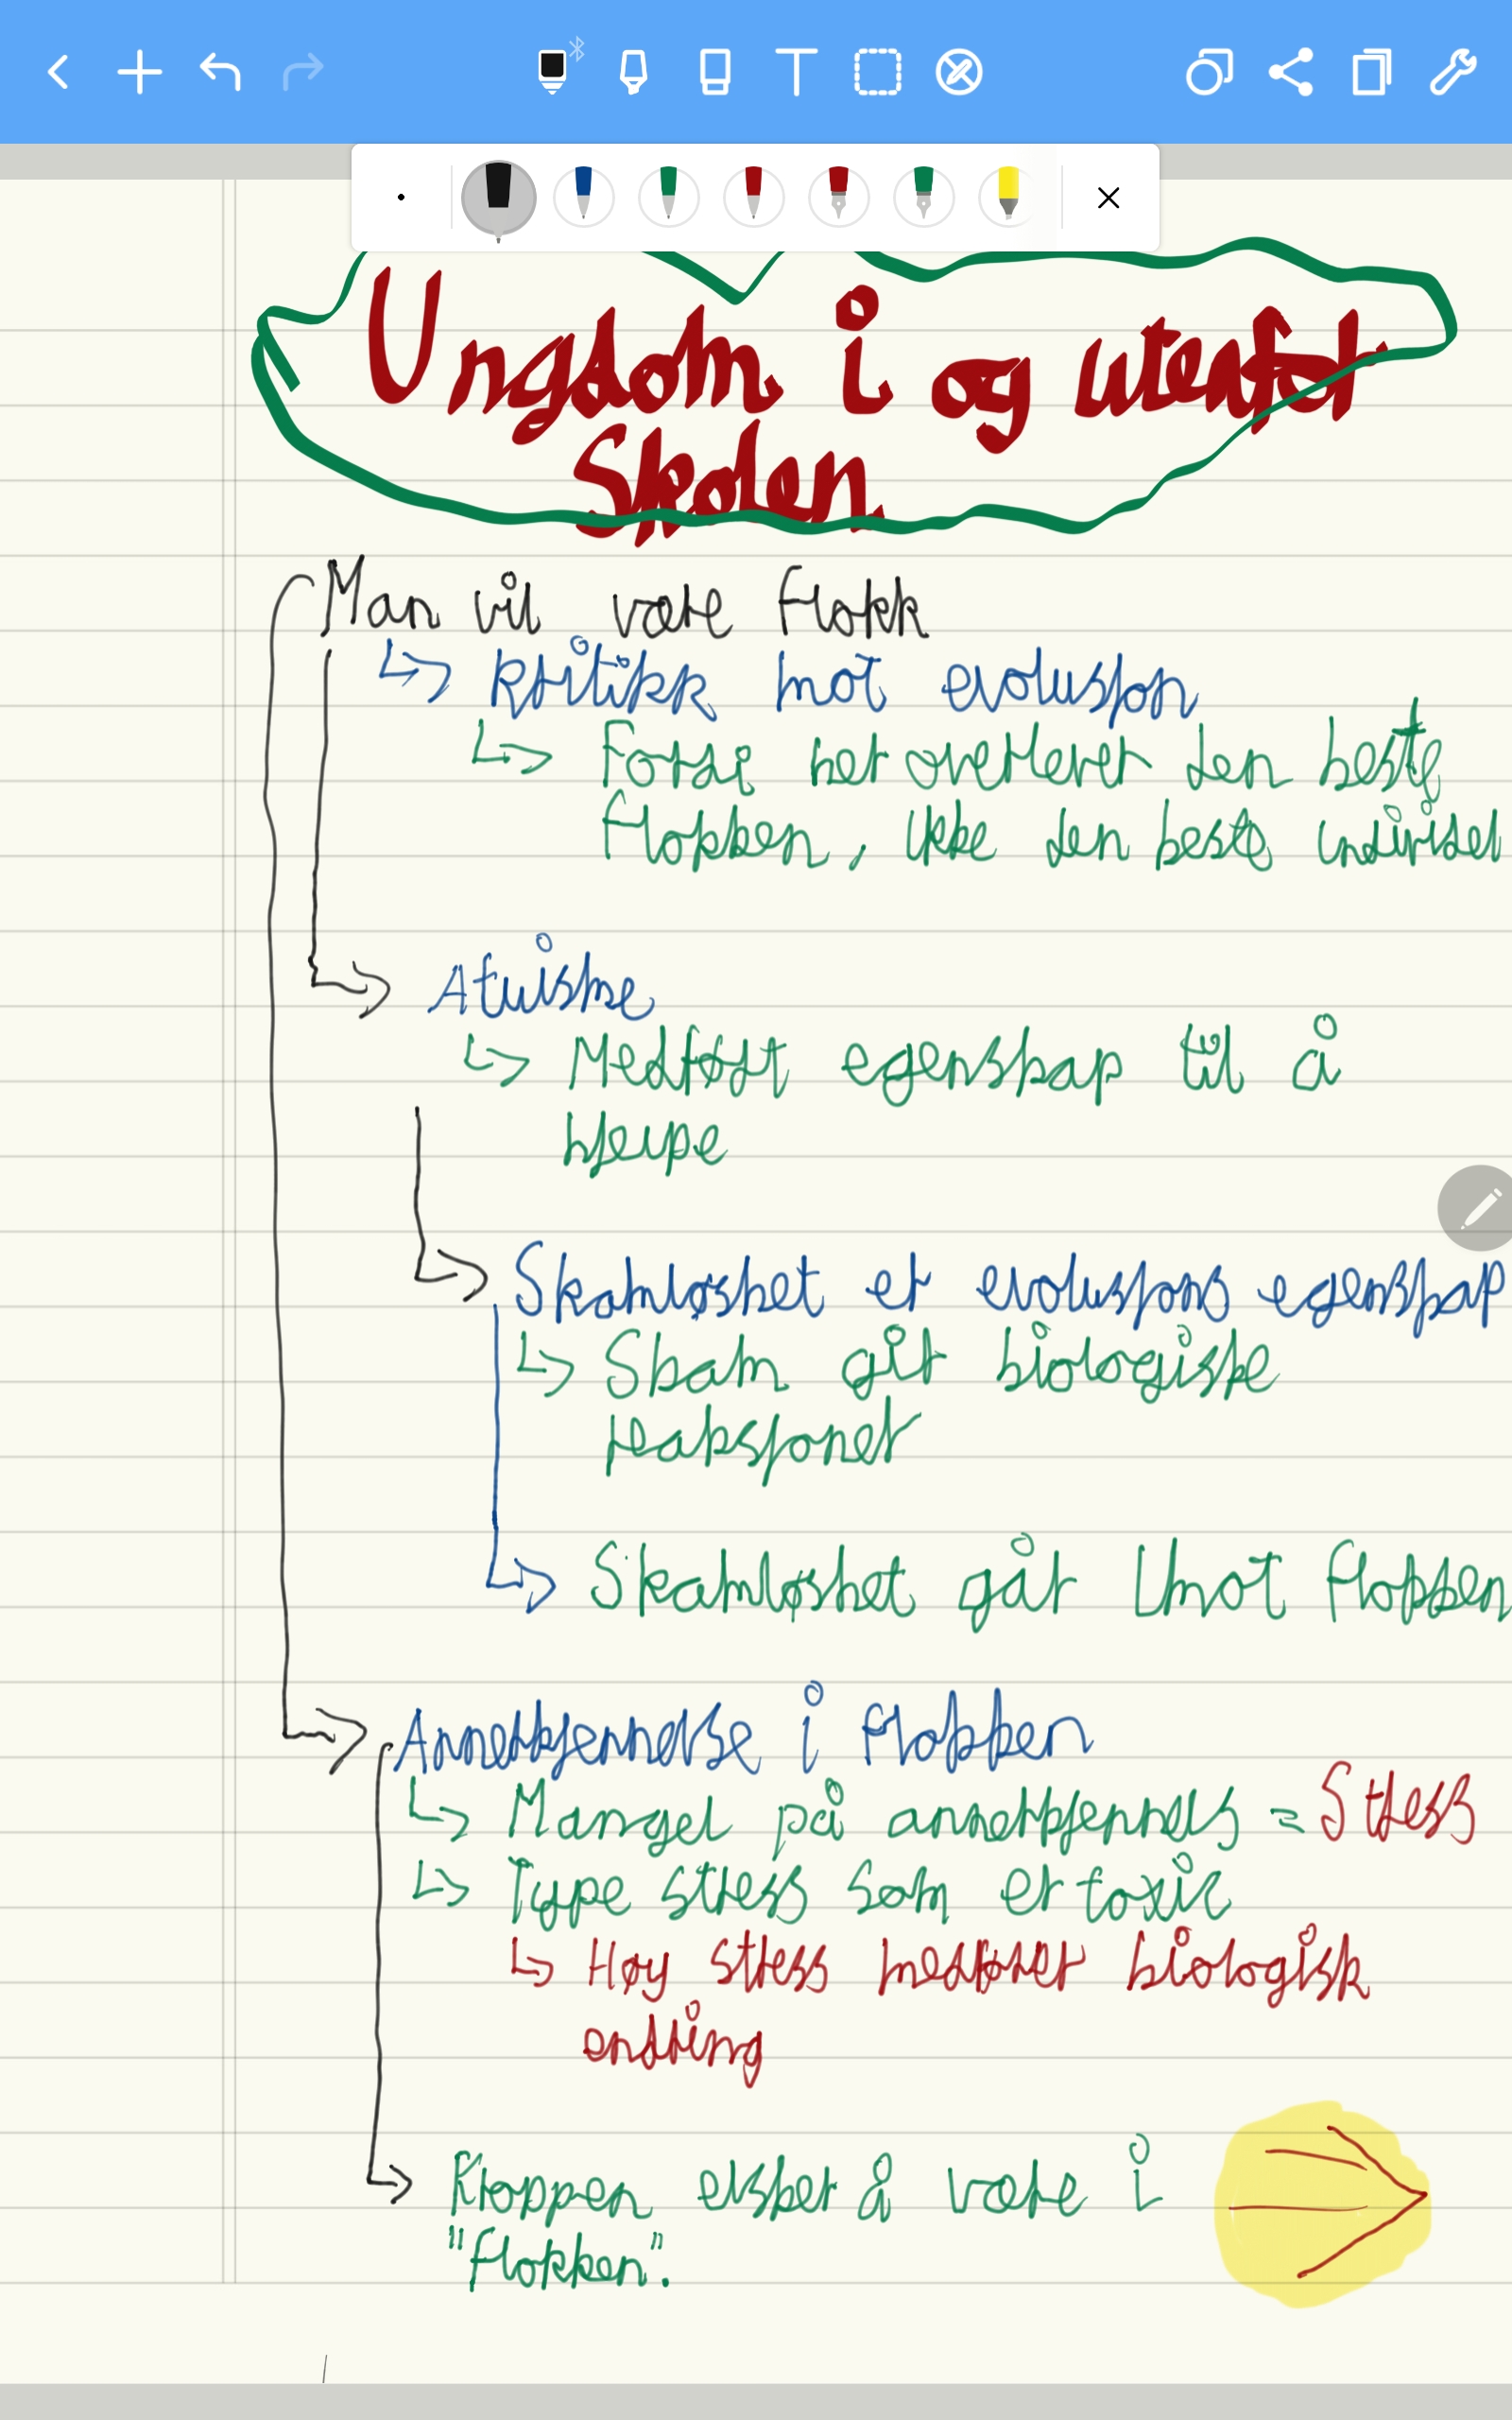 Ungdom i og utenfor
Skolen
Man vil være Flokk
Kritikk mot evolusjon
Forsi het overlever den beste
Flokken, ikke den beste individet
Atuiske
Medfødt egenskap til å
hjelpe
Skamløshet er evolusjons egenskap
Skam gir biologiske
reaksjoner
Skamløshet går imot flokken
Annerkjennelse i flokken
Mangel på annerkjennels = Stress
Type stress som er toxic
Høy stress medfører biologisk
endring
Kroppen elsker å være i
"flokken".